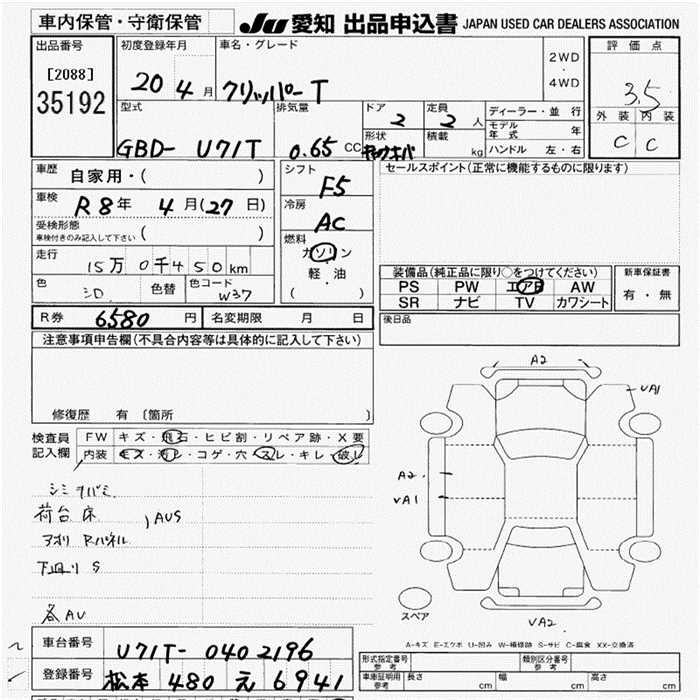 車内保管・守衛保管
JU 愛知 出品申込書 JAPAN USED CAR DEALERS ASSOCIATION
出品番号
[2088]
35192
初度登録年月
20 4 月
車名・グレード
クリッパー T
2WD
・
4WD
評価点
3.5
外装 内装
C C
型式
GBD- U71T
排気量
0.65 CC
ドア
2
定員
2 人
ディーラー・並 行
モデル年式 年
ハンドル 左・右
形状
積載 kg
車歴
自家用・( )
シフト
F5
セールスポイント(正常に機能するものに限ります)
車検
R8年 4月(27日)
冷房
AC
受検形態
車検付きのみ記入して下さい ( )
燃料
ガソリン
・
軽・油
( )
走行
15万 0千450km
色
シロ 色替
色コード
W37
装備品(純正品に限り○をつけてください)
PS PW エアB AW
SR ナビ TV カワシート
新車保証書
有・無
R券 6580 円 名変期限 月 日
後日品
注意事項申告欄(不具合内容等は具体的に記入して下さい)
修復歴 有〔箇所 〕
検査員記入欄
FW キズ・飛石・ヒビ割・リペア跡・X要
内装 キズ・汚レ・コゲ・穴・スレ・キレ・破レ
荷台 床
アオリ Rパネル
AUS
下廻り S
各AU
A2
VA1
A2
VA1
VA2
スペア
A-キズ E-エクボ U-凹み W-補修跡 S-サビ C-腐食 XX-交換済
車台番号 U71T- 0402196
登録番号 松本 480 え 6941
形式指定番号 参考
類別区分番号 参考
車庫証明用 参考 長さ cm 幅 cm 高さ cm